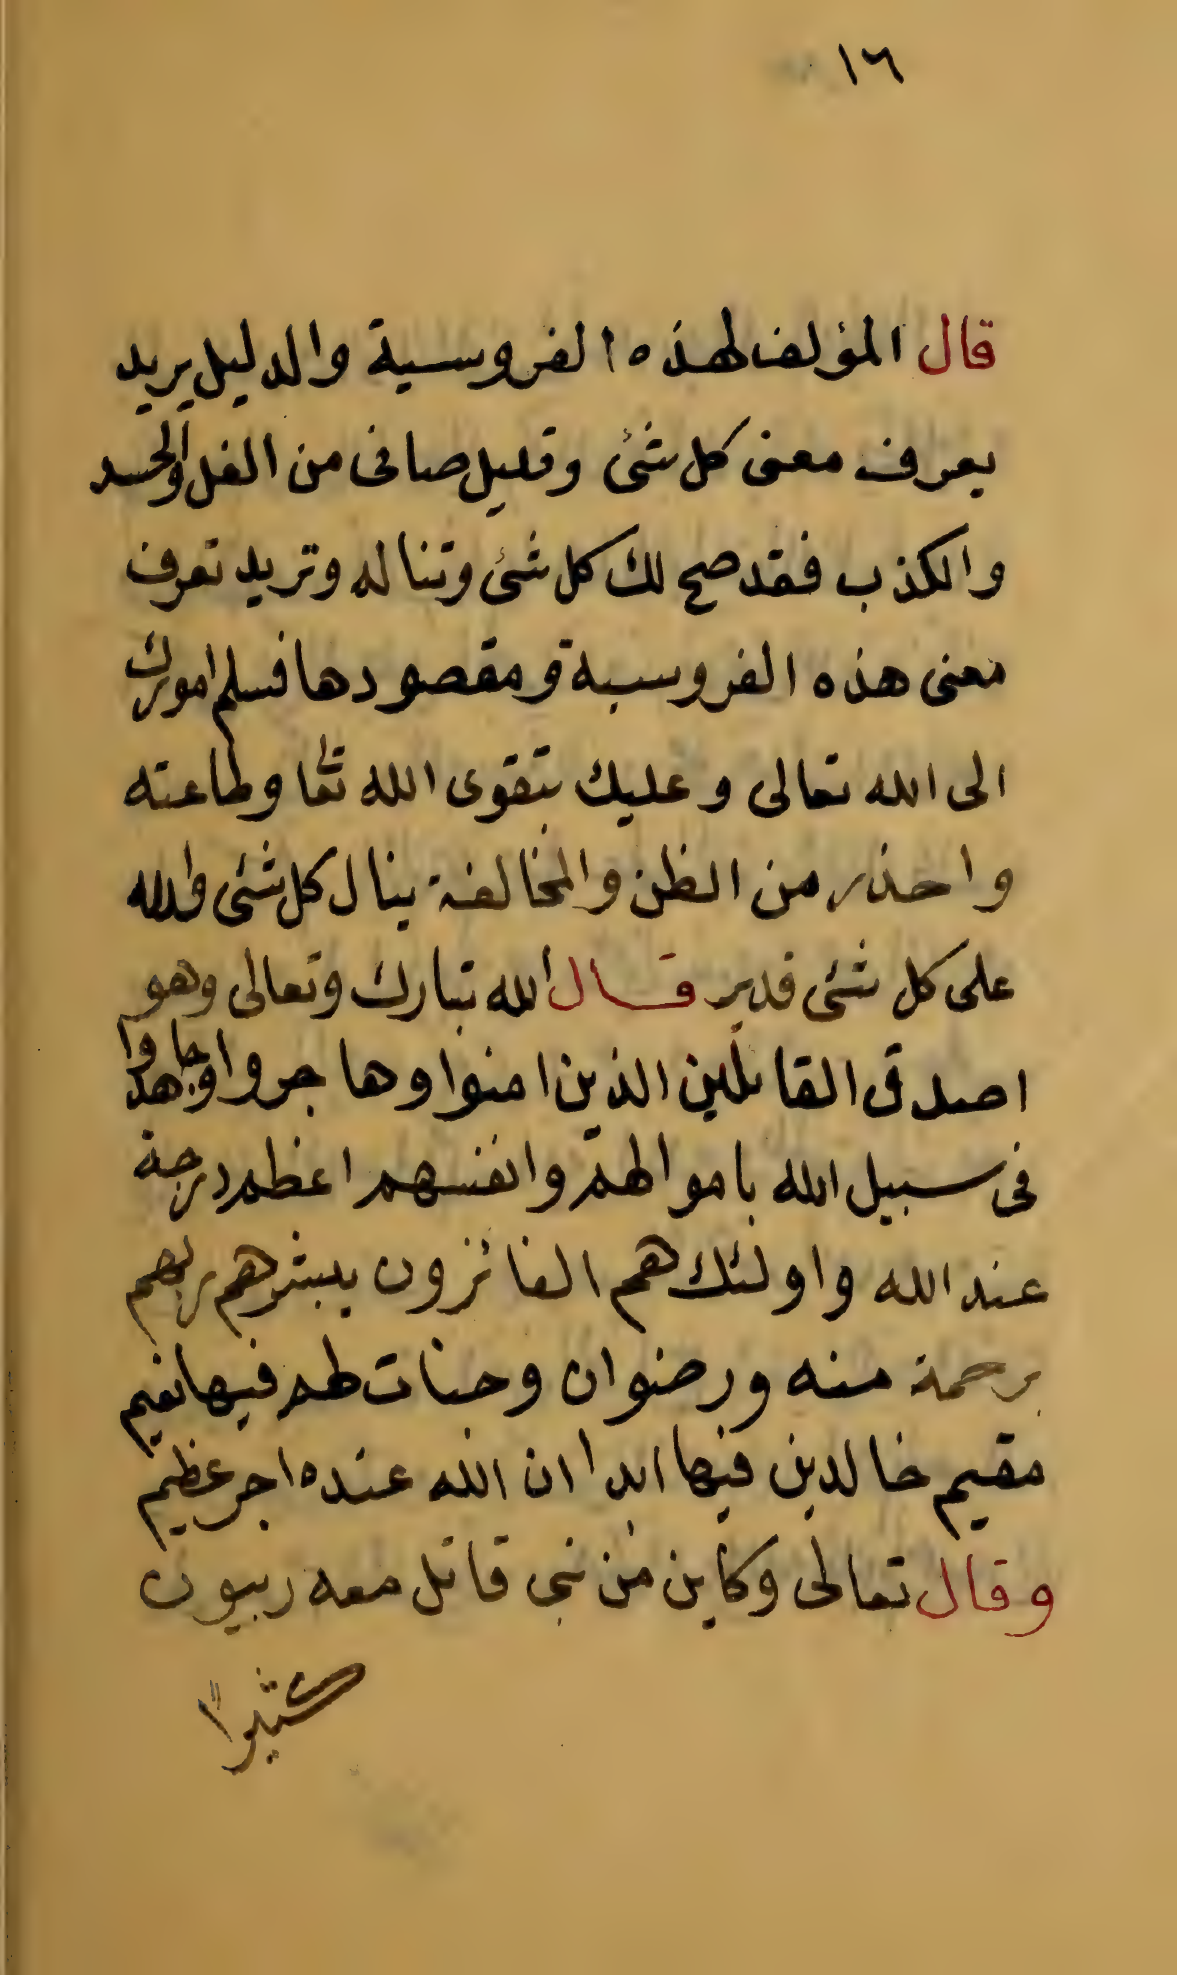 ١٦
قال المؤلف لهذه الفروسية والدليل يريد
يعرف معنى كل شئ وقليل صافى من الغل والحسد
والكذب فقد صح لك كل شئ وتناله وتريد تعرف
معنى هذه الفروسية ومقصودها فسلم امورك
الى الله تعالى وعليك بتقوى الله تعا وطاعته
واحذر من الظن والمخالفة ينال كل شئ والله
على كل شئ قدير قال الله تبارك وتعالى وهو
اصدق القائلين الذين امنوا وهاجروا وجاهدوا
فى سبيل الله باموالهم وانفسهم اعظم درجة
عند الله واولئك هم الفائزون يبشرهم ربهم
برحمة منه ورضوان وجنات لهم فيها نعيم
مقيم خالدين فيها ابدا ان الله عنده اجر عظيم
وقال تعالى وكاين من نبى قاتل معه ربيون
كثيراً